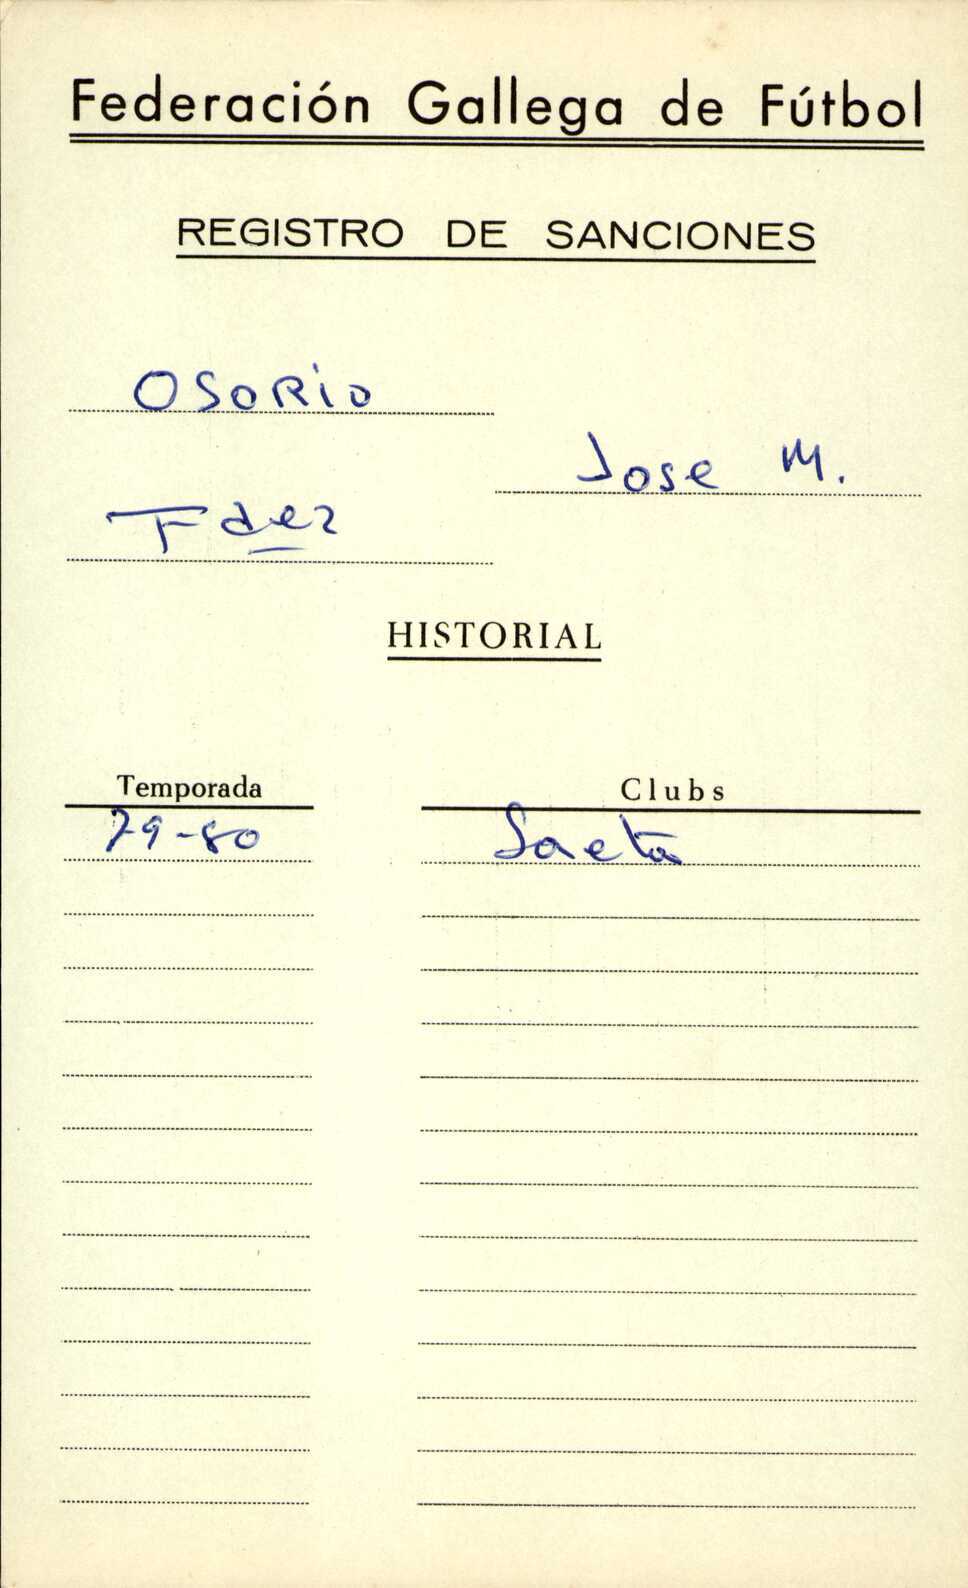 Federación Gallega de Fútbol
REGISTRO DE SANCIONES
OSORIO
Jose M.
Faez
HISTORIAL
Temporada Clubs
79-80 Saeta